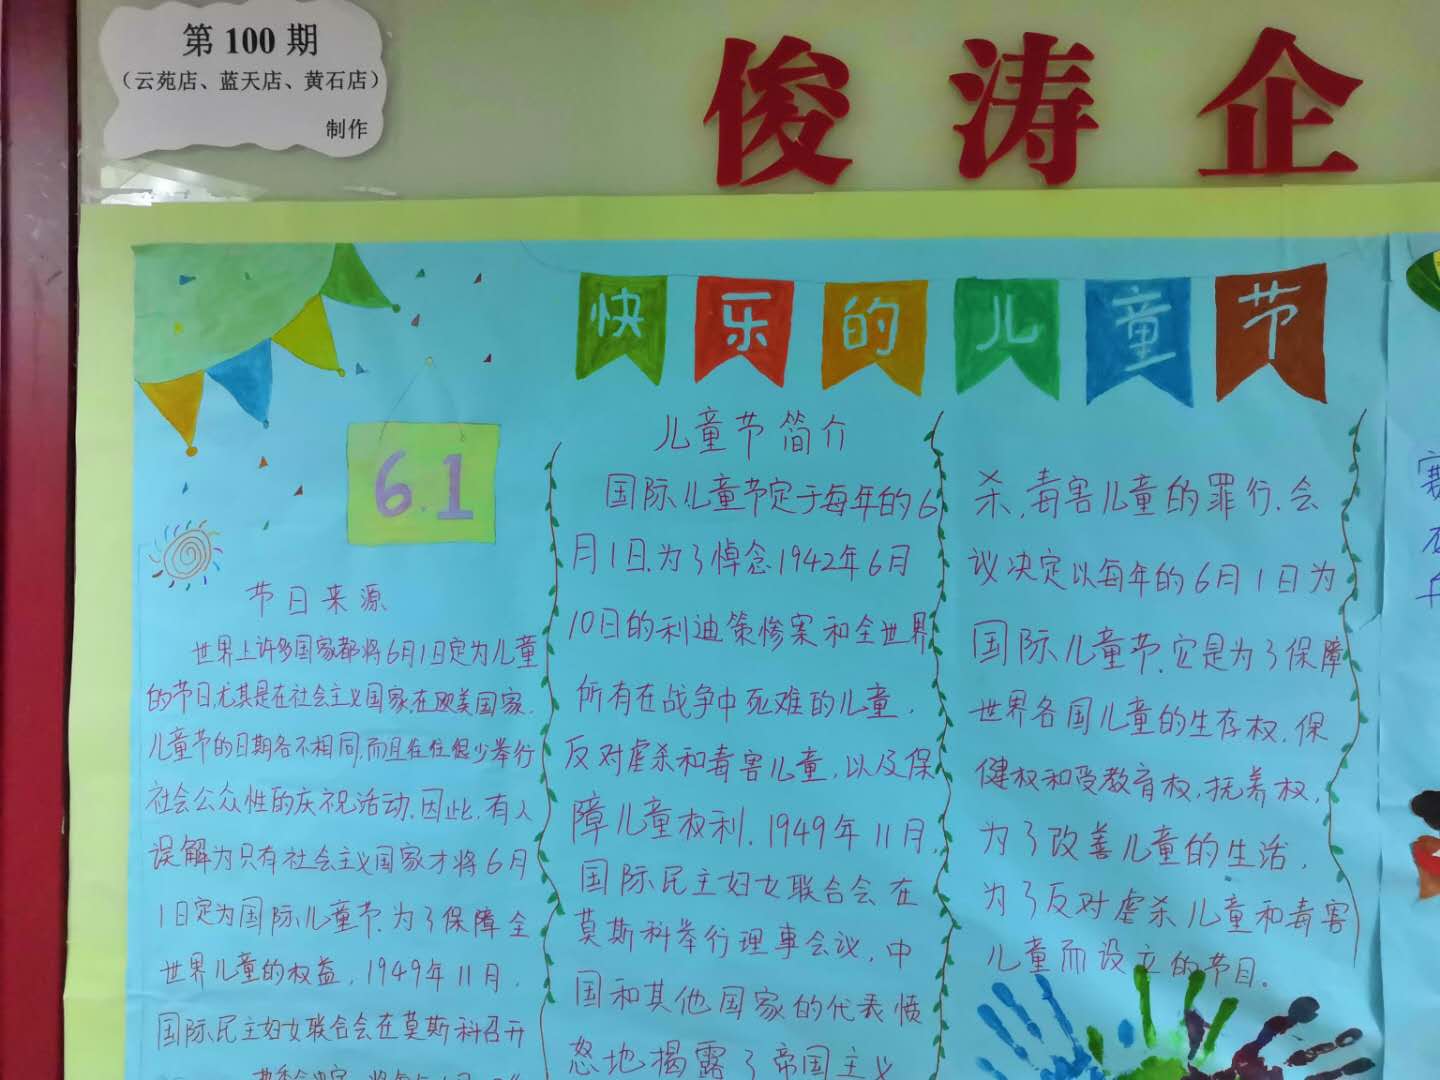 第 100 期
（云苑店、蓝天店、黄石店）
制作
俊涛企
快乐的儿童节
6.1
节日来源
世界上许多国家都将6月1日定为儿童
的节日,尤其是在社会主义国家.在欧美国家.
儿童节的日期各不相同,而且往往很少举行
社会公众性的庆祝活动.因此,有人
误解为只有社会主义国家才将6月
1日定为国际儿童节.为了保障全
世界儿童的权益,1949年11月,
国际民主妇女联合会在莫斯科召开
儿童节简介
国际儿童节定于每年的6
月1日.为了悼念1942年6月
10日的利迪策惨案和全世界
所有在战争中死难的儿童,
反对虐杀和毒害儿童,以及保
障儿童权利,1949年11月,
国际民主妇女联合会在
莫斯科举行理事会议,中
国和其他国家的代表愤
怒地揭露了帝国主义
杀,毒害儿童的罪行.会
议决定以每年的6月1日为
国际儿童节.它是为了保障
世界各国儿童的生存权,保
健权和受教育权,抚养权,
为了改善儿童的生活,
为了反对虐杀儿童和毒害
儿童而设立的节目。